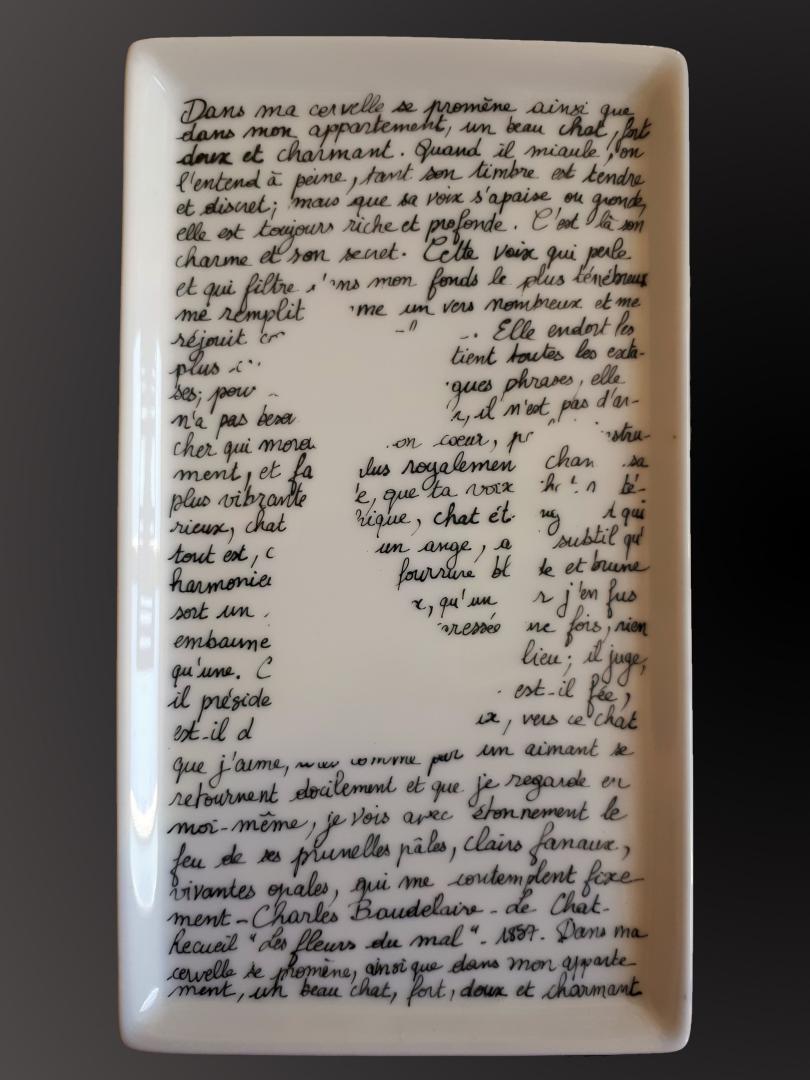 Dans ma cervelle se promène ainsi que
dans mon appartement, un beau chat, fort
doux et charmant. Quand il miaule, on
l'entend à peine, tant son timbre est tendre
et discret; mais que sa voix s'apaise ou gronde,
elle est toujours riche et profonde. C'est là son
charme et son secret. Cette voix qui perle
et qui filtre mon fonds le plus ténébreux
me remplit me un vers nombreux et me
réjouit . Elle endort les
plus tient toutes les exta-
ses; pou gues phrases, elle
n'a pas beso , il n'est pas d'ar-
cher qui mord on coeur, p stru-
ment, et fa lus royalemen chan sa
plus vibrante e, que ta voix bé-
rieux, chat rique, chat ét t qui
tout est, c un ange, a subtil qu'
harmonie fourrure bl de et brune
sort un x, qu'un r j'en fus
embaumé ressée ne fois, rien
qu'une. C lieu; il juge,
il préside est-il fée,
est-il d ux, vers ce chat
que j'aime, comme par un aimant se
retournent docilement et que je regarde en
moi-même, je vois avec étonnement le
feu de ses prunelles pâles, clairs fanaux,
vivantes opales, qui me contemplent fixe
ment - Charles Baudelaire - Le Chat -
Recueil "Les fleurs du mal" - 1857. Dans ma
cervelle se promène, ainsi que dans mon apparte
ment, un beau chat, fort, doux et charmant